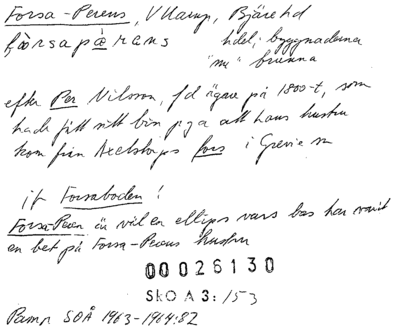 Forsa-Perens, V Karup, Bjäre hd
fɷrsapæ̀rens hdel; byggnaderna
"nu" brunna
efter Per Nilsson, f d ägare på 1800-t, som
hade fått sitt bin genom att hans hustru
kom från Axelstorps fors i Grevie sn
jf Forsaboden!
Forsa-Peren är väl en ellips vars bas har varit
en bet på Forsa-Perens hustru
00026130
SkO A 3: 153
Pamp SOÅ 1963-1964:82